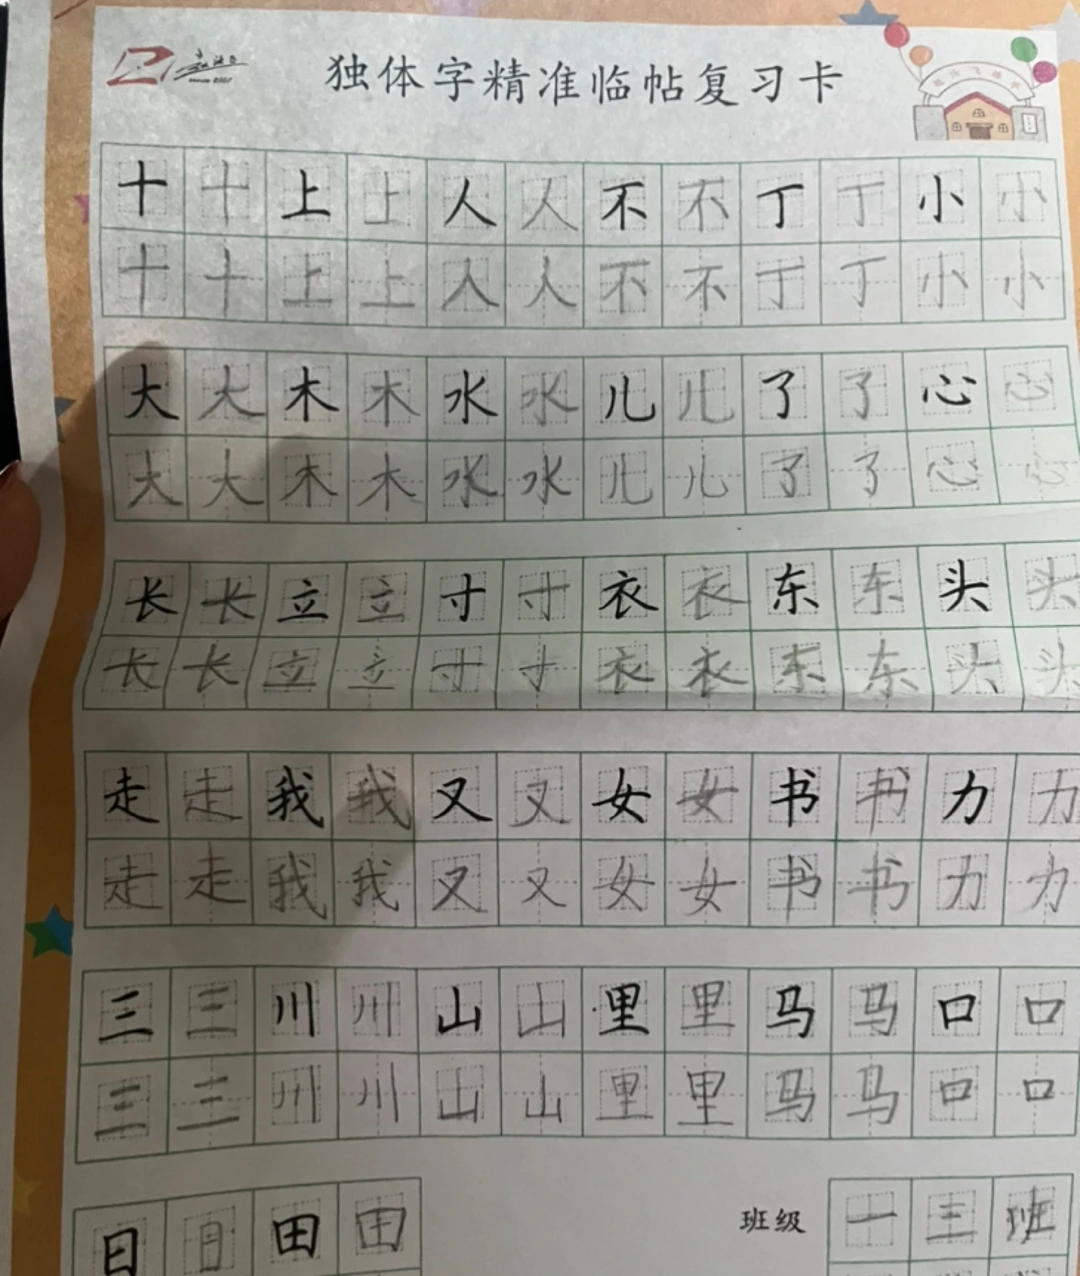 独体字精准临帖复习卡
十十上上人人不不丁丁小小
十十上上人人不不丁丁小小
大大木木水水儿儿了了心心
大大木木水水儿儿了了心心
长长立立寸寸衣衣东东头头
长长立立寸寸衣衣东东头头
走走我我又又女女书书力力
走走我我又又女女书书力力
三三川川山山里里马马口口
三三川川山山里里马马口口
日日田田
班级 一三班